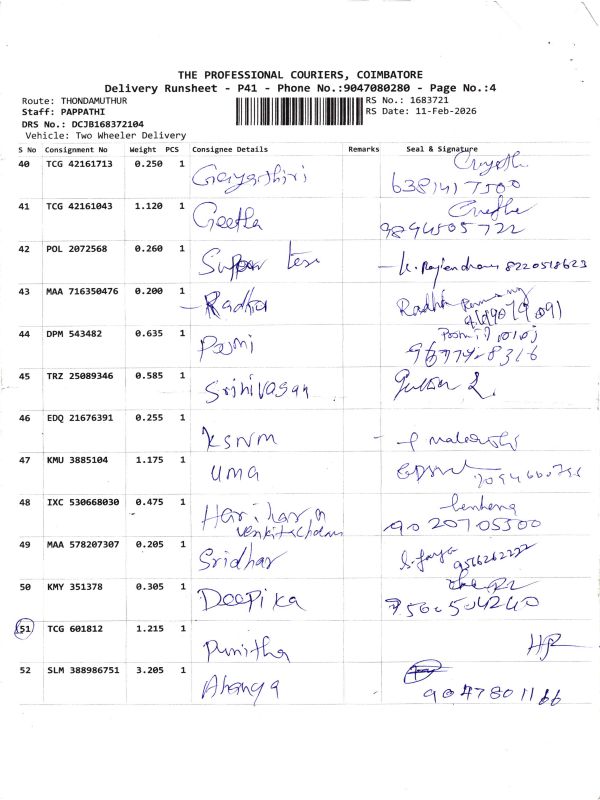 THE PROFESSIONAL COURIERS, COIMBATORE
Delivery Runsheet - P41 - Phone No.:9047080280 - Page No.:4
Route: THONDAMUTHUR RS No.: 1683721
Staff: PAPPATHI RS Date: 11-Feb-2026
DRS No.: DCJB168372104
Vehicle: Two Wheeler Delivery
S No Consignment No Weight PCS Consignee Details Remarks Seal & Signature
40 TCG 42161713 0.250 1 Gayathiri
6381417500
41 TCG 42161043 1.120 1 Geetha
9894505722
42 POL 2072568 0.260 1 Super
K. Rajendran 8220518623
43 MAA 716350476 0.200 1 Radha Radha
44 DPM 543482 0.635 1
45 TRZ 25089346 0.585 1 Srinivasan
46 EDQ 21676391 0.255 1 KSNM
47 KMU 3885104 1.175 1 UMA
48 IXC 530668030 0.475 1 Hariharan
9020705500
49 MAA 578207307 0.205 1 Sridhar
50 KMY 351378 0.305 1 Deepika
51 TCG 601812 1.215 1 Punitha
52 SLM 388986751 3.205 1
9047801166